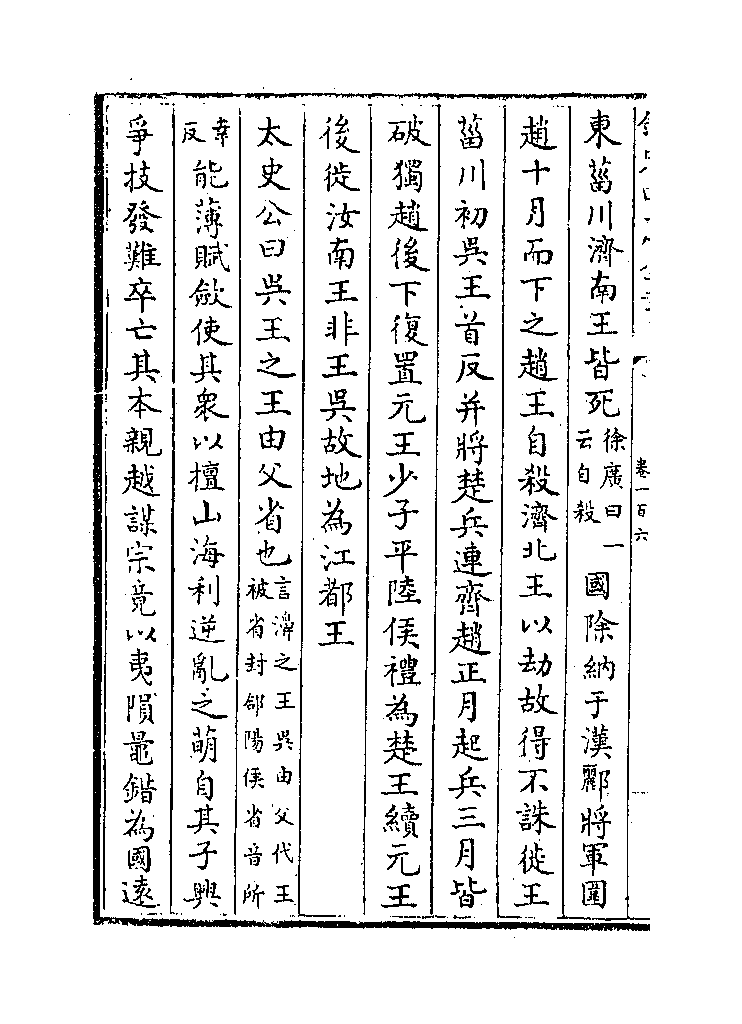 卷一百六
東菑川濟南王皆死徐廣曰一云自殺國除納于漢酈將軍圍
趙十月而下之趙王自殺濟北王以劫故得不誅徙王
菑川初吳王首反并將楚兵連齊趙正月起兵三月皆
破獨趙後下復置元王少子平陸侯禮為楚王續元王
後徙汝南王非王吳故地為江都王
太史公曰吳王之王由父省也言濞之王吳由父代王被省封郃陽侯省音所
幸反能薄賦斂使其衆以擅山海利逆亂之萌自其子興
爭技發難卒亡其本親越謀宗竟以夷隕鼂錯為國遠